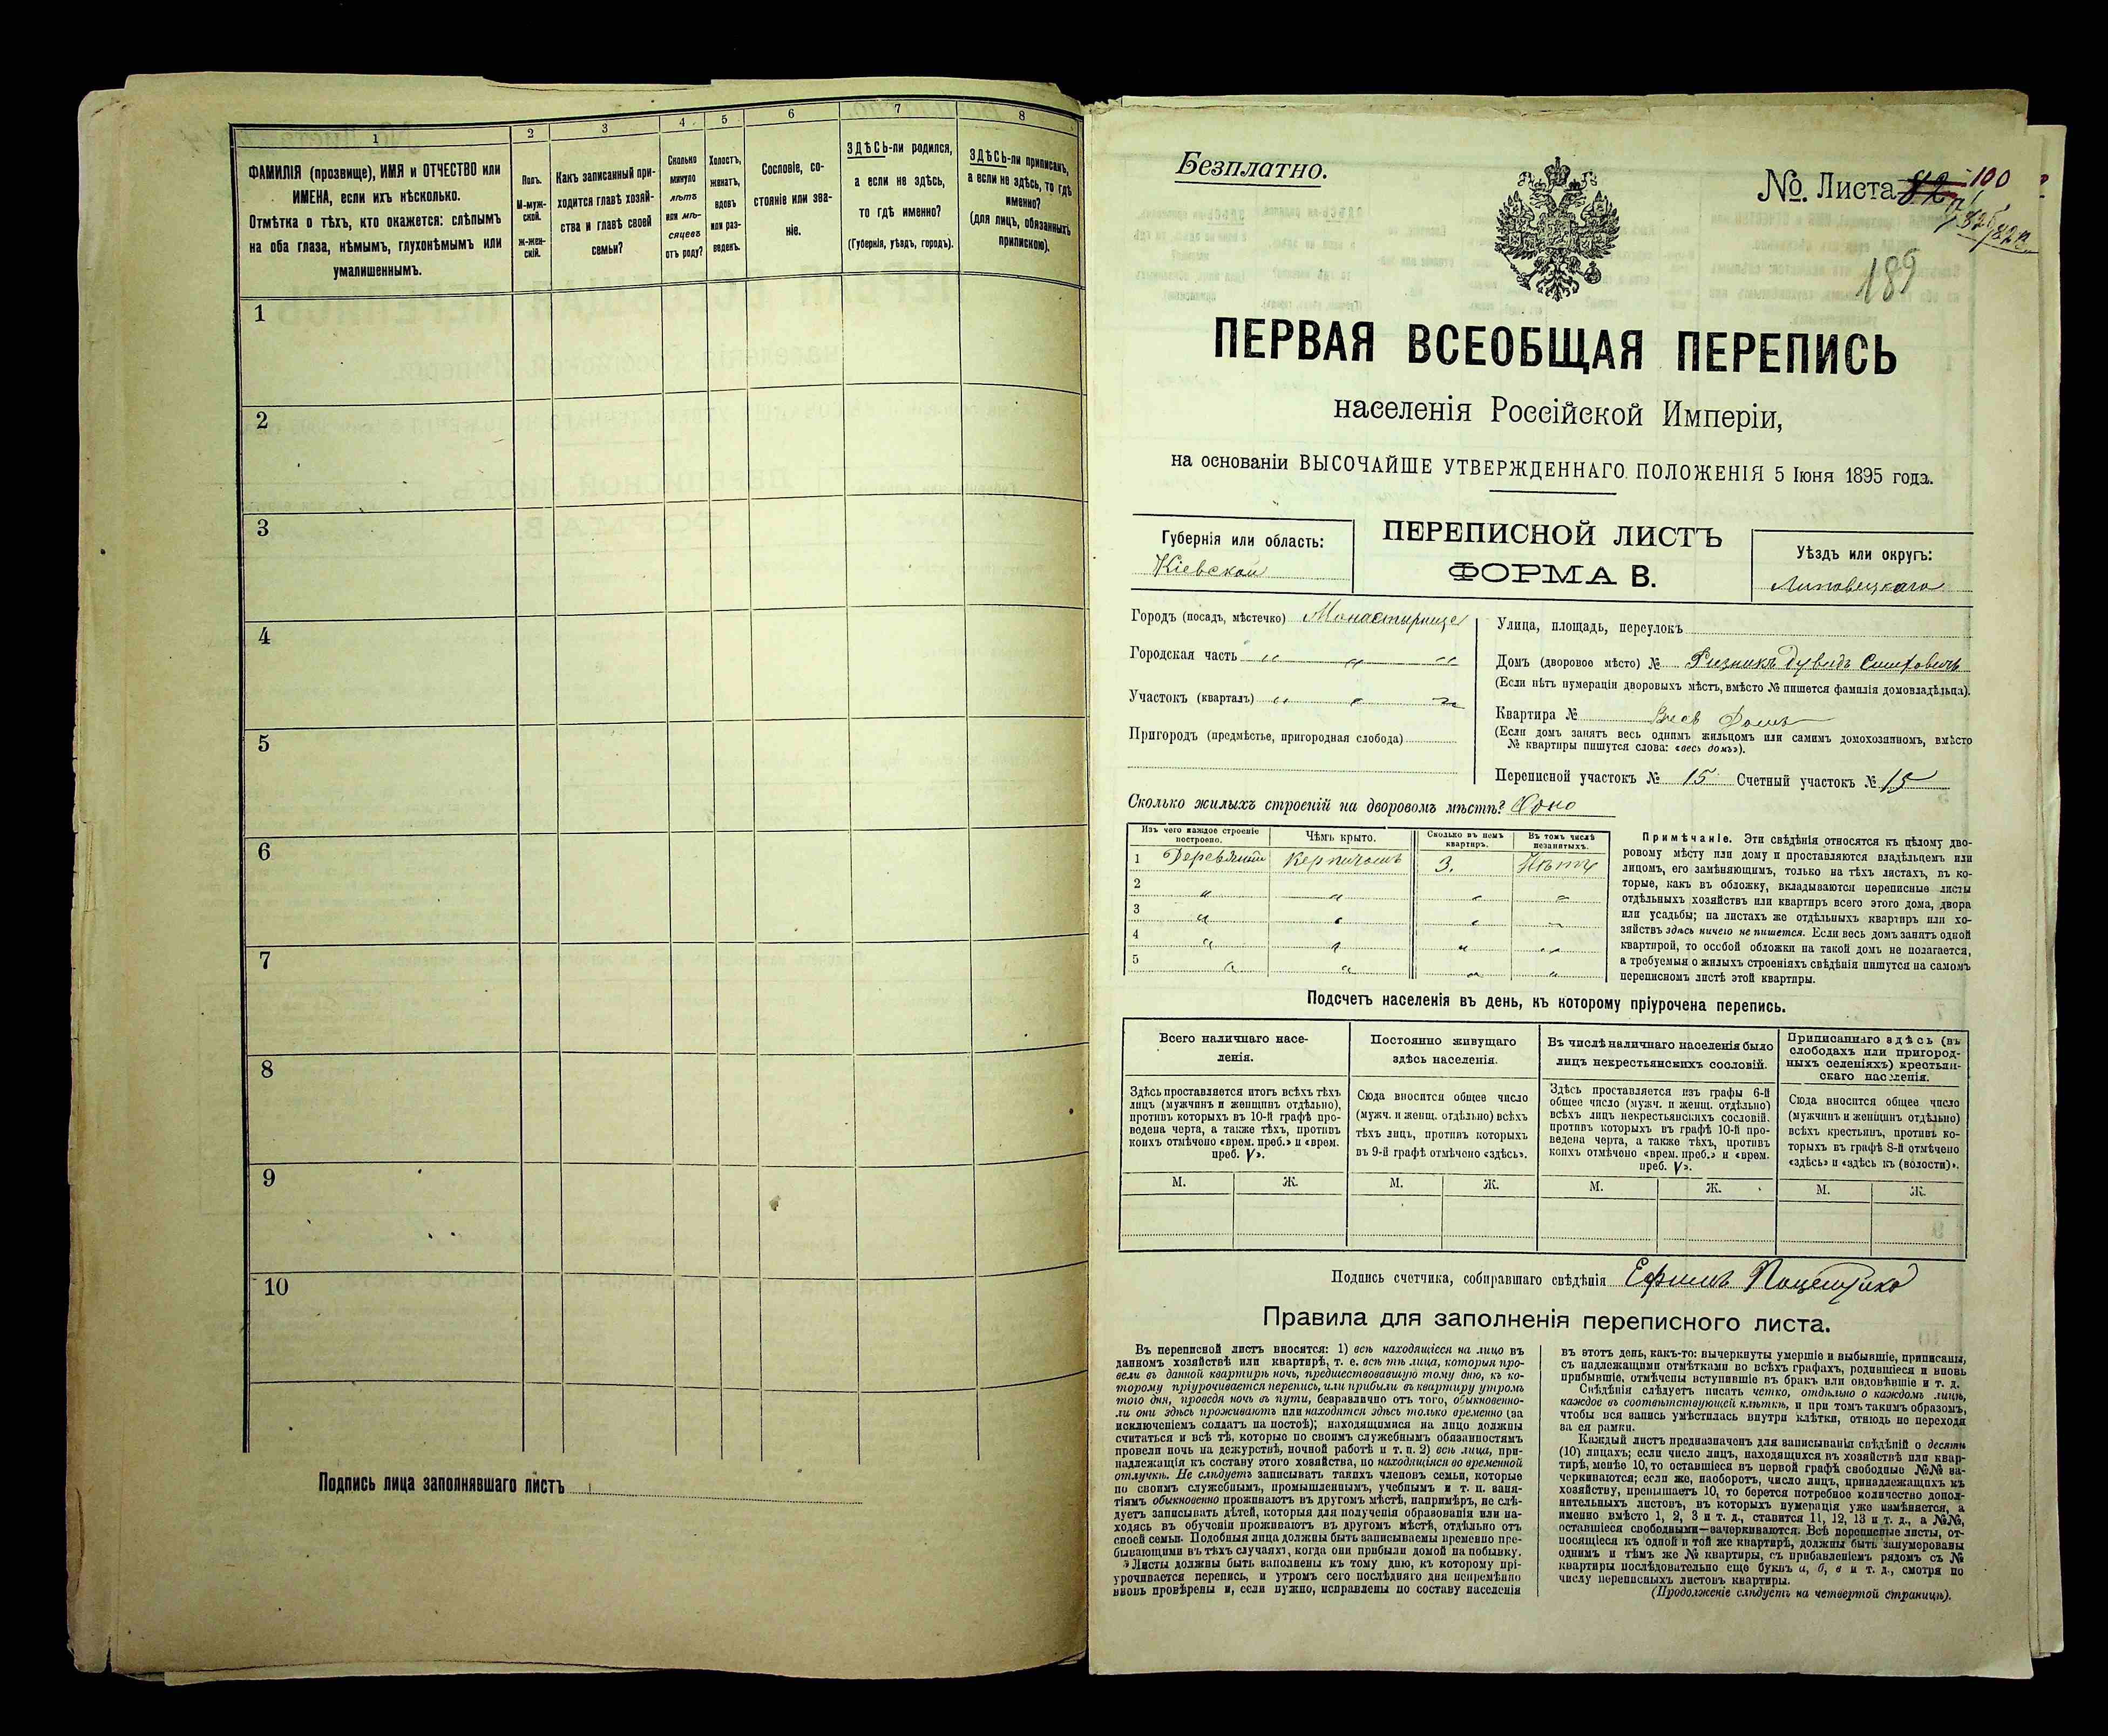 1
2
3
4
5
6
7
8
ФАМИЛІЯ (прозвище), ИМЯ и ОТЧЕСТВО или
ИМЕНА, если ихъ нѣсколько.
Отмѣтка о тѣхъ, кто окажется: слѣпымъ
на оба глаза, нѣмымъ, глухонѣмымъ или
умалишеннымъ.
Полъ.
М-муж-
ской.
Ж-жен-
скій.
Какъ записанный при-
ходится главѣ хозяй-
ства и главѣ своей
семьи?
Сколько
минуло
лѣтъ
или мѣ-
сяцевъ
отъ роду?
Холостъ,
женатъ,
вдовъ
или раз-
веденъ.
Сословіе, со-
стояніе или зва-
ніе.
ЗДѢСЬ-ли родился,
а если не здѣсь,
то гдѣ именно?
(Губернія, уѣздъ, городъ).
ЗДѢСЬ-ли приписанъ,
а если не здѣсь, то гдѣ
именно?
(для лицъ, обязанныхъ
припискою).
1
2
3
4
5
6
7
8
9
10
Подпись лица заполнявшаго листъ
Безплатно.
№. Листа 100
189
ПЕРВАЯ ВСЕОБЩАЯ ПЕРЕПИСЬ
населенія Россійской Имперіи,
на основаніи ВЫСОЧАЙШЕ УТВЕРЖДЕННАГО ПОЛОЖЕНІЯ 5 Іюня 1895 года.
Губернія или область:
Кіевской
ПЕРЕПИСНОЙ ЛИСТЪ
ФОРМА В.
Уѣздъ или округъ:
Липовецкаго
Городъ (посадъ, мѣстечко) Монастырище
Городская часть " " "
Участокъ (кварталъ) " " "
Пригородъ (предмѣстье, пригородная слобода)
Улица, площадь, переулокъ
Домъ (дворовое мѣсто) № Ризникъ Дувидъ
(Если нѣтъ нумераціи дворовыхъ мѣстъ, вмѣсто № пишется фамилія домовладѣльца).
Квартира № Весь Домъ
(Если домъ занятъ весь однимъ жильцомъ или самимъ домохозяиномъ, вмѣсто
№ квартиры пишутся слова: «весь домъ»).
Переписной участокъ № 15 Счетный участокъ № 15
Сколько жилыхъ строеній на дворовомъ мѣстѣ? Одно
Изъ чего каждое строеніе
построено.
Чѣмъ крыто.
Сколько въ немъ
квартиръ.
Въ томъ числѣ
незанятыхъ.
1 Деревянный Керпичомъ 3. Нѣтъ
2 " " " "
3 " " " "
4 " " " "
5 " " " "
Примѣчаніе. Эти свѣдѣнія относятся къ цѣлому дво-
ровому мѣсту или дому и проставляются владѣльцемъ или
лицомъ, его замѣняющимъ, только на тѣхъ листахъ, въ ко-
торые, какъ въ обложку, вкладываются переписные листы
отдѣльныхъ хозяйствъ или квартиръ всего этого дома, двора
или усадьбы; на листахъ же отдѣльныхъ квартиръ или хо-
зяйствъ здѣсь ничего не пишется. Если весь домъ занятъ одной
квартирой, то особой обложки на такой домъ не полагается,
а требуемыя о жилыхъ строеніяхъ свѣдѣнія пишутся на самомъ
переписномъ листѣ этой квартиры.
Подсчетъ населенія въ день, къ которому пріурочена перепись.
Всего наличнаго насе-
ленія.
Здѣсь проставляется итогъ всѣхъ тѣхъ
лицъ (мужчинъ и женщинъ отдѣльно),
противъ которыхъ въ 10-й графѣ про-
ведена черта, а также тѣхъ, противъ
коихъ отмѣчено «врем. преб.» и «врем.
преб. V».
Постоянно живущаго
здѣсь населенія.
Сюда вносится общее число
(мужч. и женщ. отдѣльно) всѣхъ
тѣхъ лицъ, противъ которыхъ
въ 9-й графѣ отмѣчено «здѣсь».
Въ числѣ наличнаго населенія было
лицъ некрестьянскихъ сословій.
Здѣсь проставляется изъ графы 6-й
общее число (мужч. и женщ. отдѣльно)
всѣхъ лицъ некрестьянскихъ сословій.
противъ которыхъ въ графѣ 10-й про-
ведена черта, а также тѣхъ, противъ
коихъ отмѣчено «врем. преб.» и «врем.
преб. V».
Приписаннаго здѣсь (въ
слободахъ или пригород-
ныхъ селеніяхъ) крестьян-
скаго населенія.
Сюда вносится общее число
(мужчинъ и женщинъ отдѣльно)
всѣхъ крестьянъ, противъ ко-
торыхъ въ графѣ 8-й отмѣчено
«здѣсь» и «здѣсь къ (волости)».
М. Ж. М. Ж. М. Ж. М. Ж.
Подпись счетчика, собиравшаго свѣдѣнія Ефимъ
Правила для заполненія переписного листа.
Въ переписной листъ вносятся: 1) всѣ находящіеся на лицо въ
данномъ хозяйствѣ или квартирѣ, т. е. всѣ тѣ лица, которыя про-
вели въ данной квартирѣ ночь, предшествовавшую тому дню, къ ко-
торому пріурочивается перепись, или прибыли въ квартиру утромъ
того дня, проведя ночь въ пути, безразлично отъ того, обыкновенно-
ли они здѣсь проживаютъ или находятся здѣсь только временно (за
исключеніемъ солдатъ на постоѣ); находящимися на лицо должны
считаться и всѣ тѣ, которые по своимъ служебнымъ обязанностямъ
провели ночь на дежурствѣ, ночной работѣ и т. п. 2) всѣ лица, при-
надлежащія къ составу этого хозяйства, но находящіяся во временной
отлучкѣ. Не слѣдуетъ записывать такихъ членовъ семьи, которые
по своимъ служебнымъ, промышленнымъ, учебнымъ и т. п. заня-
тіямъ обыкновенно проживаютъ въ другомъ мѣстѣ, напримѣръ, не слѣ-
дуетъ записывать дѣтей, которыя для полученія образованія или на-
ходясь въ обученіи проживаютъ въ другомъ мѣстѣ, отдѣльно отъ
своей семьи. Подобныя лица должны быть записываемы временно пре-
бывающими въ тѣхъ случаяхъ, когда они прибыли домой на побывку.
Листы должны быть заполнены къ тому дню, къ которому прі-
урочивается перепись, и утромъ сего послѣдняго дня непремѣнно
вновь провѣрены и, если нужно, исправлены по составу населенія
въ этотъ день, какъ-то: вычеркнуты умершіе и выбывшіе, приписаны,
съ надлежащими отмѣтками во всѣхъ графахъ, родившіеся и вновь
прибывшіе, отмѣчены вступившіе въ бракъ или овдовѣвшіе и т. д.
Свѣдѣнія слѣдуетъ писать четко, отдѣльно о каждомъ лицѣ,
каждое въ соотвѣтствующей клѣткѣ, и при томъ такимъ образомъ,
чтобы вся запись умѣстилась внутри клѣтки, отнюдь не переходя
за ея рамки.
Каждый листъ предназначенъ для записыванія свѣдѣній о десяти
(10) лицахъ; если число лицъ, находящихся въ хозяйствѣ или квар-
тирѣ, менѣе 10, то оставшіеся въ первой графѣ свободные №№ за-
черкиваются; если же, наоборотъ, число лицъ, принадлежащихъ къ
хозяйству, превышаетъ 10, то берется потребное количество допол-
нительныхъ листовъ, въ которыхъ нумерація уже измѣняется, а
именно вмѣсто 1, 2, 3 и т. д., ставится 11, 12, 13 и т. д., а №№,
оставшіеся свободными—зачеркиваются. Всѣ переписные листы, от-
носящіеся къ одной и той же квартирѣ, должны быть занумерованы
однимъ и тѣмъ же № квартиры, съ прибавленіемъ рядомъ съ №
квартиры послѣдовательно еще буквъ а, б, в и т. д., смотря по
числу переписныхъ листовъ квартиры.
(Продолженіе слѣдуетъ на четвертой страницѣ).